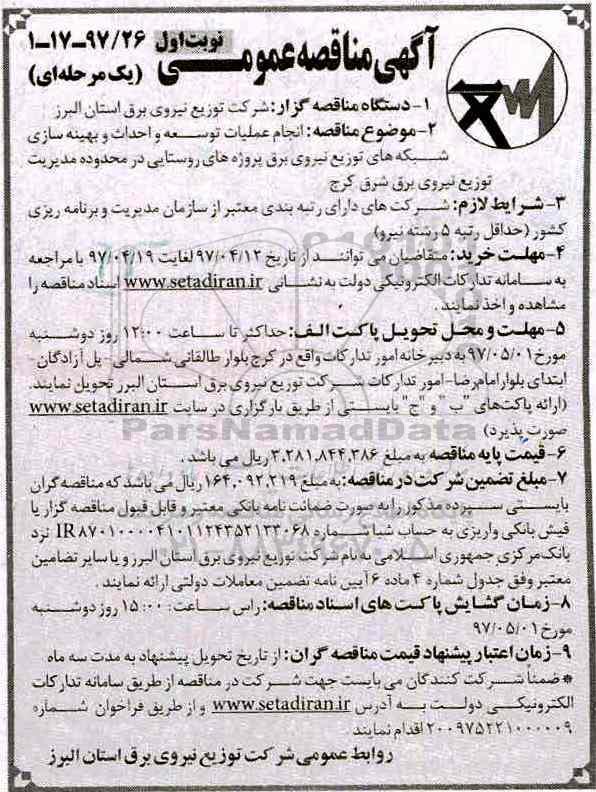 آگهی مناقصه عمومی نوبت اول ۹۷/۲۶-۱۷-۱
(یک مرحله‌ای)
۱- دستگاه مناقصه گزار: شرکت توزیع نیروی برق استان البرز
۲- موضوع مناقصه: انجام عملیات توسعه و احداث و بهینه سازی
شبکه های توزیع نیروی برق پروژه های روستایی در محدوده مدیریت
توزیع نیروی برق شرق کرج
۳- شرایط لازم: شرکت های دارای رتبه بندی معتبر از سازمان مدیریت و برنامه ریزی
کشور (حداقل رتبه ۵ رشته نیرو)
۴- مهلت خرید: متقاضیان می توانند از تاریخ ۹۷/۰۴/۱۲ لغایت ۹۷/۰۴/۱۹ با مراجعه
به سامانه تدارکات الکترونیکی دولت به نشانی www.setadiran.ir اسناد مناقصه را
مشاهده و اخذ نمایند.
۵- مهلت و محل تحویل پاکت الف: حداکثر تا ساعت ۱۲:۰۰ روز دوشنبه
مورخ ۹۷/۰۵/۰۱ به دبیرخانه امور تدارکات واقع در کرج بلوار طالقانی شمالی - پل آزادگان -
ابتدای بلوار امام رضا - امور تدارکات شرکت توزیع نیروی برق استان البرز تحویل نمایند.
(ارائه پاکت‌های "ب" و "ج" بایستی از طریق بارگزاری در سایت www.setadiran.ir
صورت پذیرد)
ParsNamadData
۶- قیمت پایه مناقصه به مبلغ ۳.۲۸۱.۸۴۴.۳۸۶ ریال می باشد.
۷- مبلغ تضمین شرکت در مناقصه: به مبلغ ۱۶۴.۰۹۲.۲۱۹ ریال می باشد که مناقصه گران
بایستی سپرده مذکور را به صورت ضمانت نامه بانکی معتبر و قابل قبول مناقصه گزار یا
فیش بانکی واریزی به حساب شبا شماره IR ۸۷۰۱۰۰۰۰۴۱۱۱۱۲۴۳۵۲۱۳۳۰۶۸ نزد
بانک مرکزی جمهوری اسلامی به نام شرکت توزیع نیروی برق استان البرز و یا سایر تضامین
معتبر وفق جدول شماره ۴ ماده ۶ آیین نامه تضمین معاملات دولتی ارائه نمایند.
۸- زمان گشایش پاکت های اسناد مناقصه: راس ساعت: ۱۵:۰۰ روز دوشنبه
مورخ ۹۷/۰۵/۰۱
۹- زمان اعتبار پیشنهاد قیمت مناقصه گران: از تاریخ تحویل پیشنهاد به مدت سه ماه
* ضمناً شرکت کنندگان می بایست جهت شرکت در مناقصه از طریق سامانه تدارکات
الکترونیکی دولت به آدرس www.setadiran.ir و از طریق فراخوان شماره
۲۰۰۹۷۵۲۲۱۰۰۰۰۰۹ اقدام نمایند.
روابط عمومی شرکت توزیع نیروی برق استان البرز